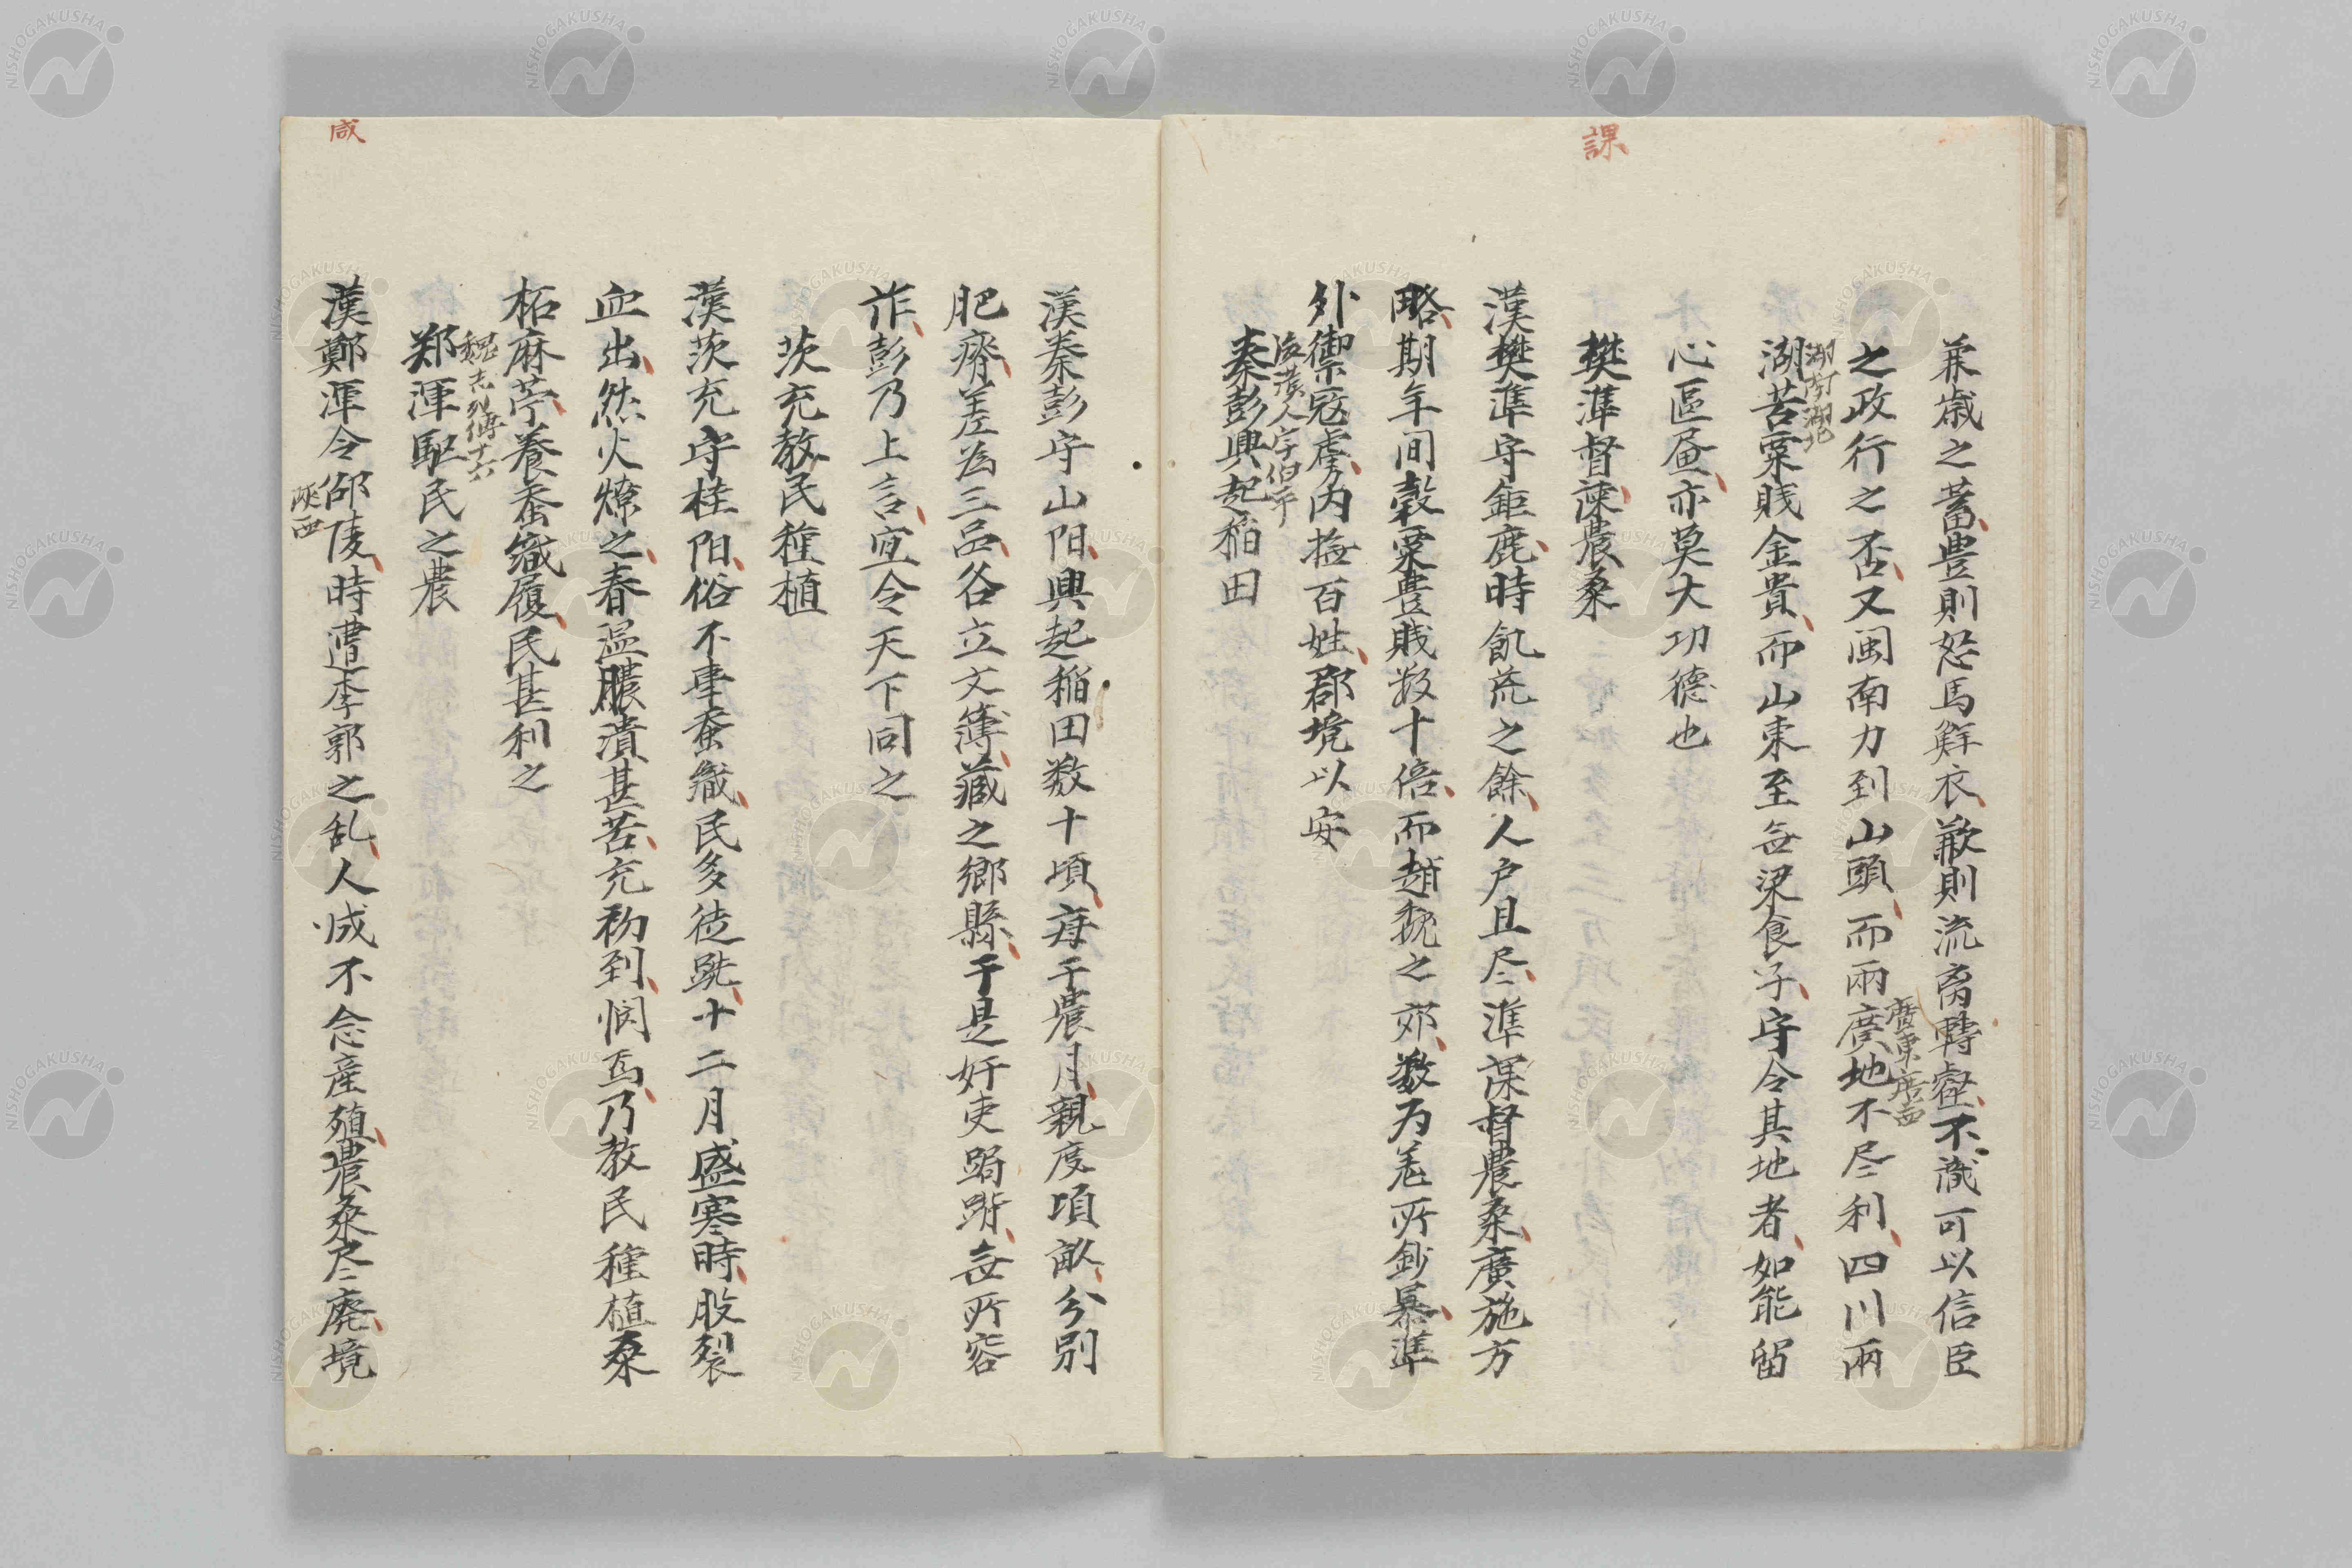 課
兼歳之蓄、豊則怒馬鮮衣、歉則流离轉壑、不識可以信臣
之政行之否、又闽南力到山頭、而兩廣地不尽利、四川兩
廣東廣西
湖苦粟賎金貴、而山東至每梁食子、守令其地者、如能留
湖南湖北
心區畫、亦莫大功德也
樊準督課農桑
漢樊準守鉅鹿、時飢荒之餘、人户且尽、準課督農桑、廣施方
略、期年间穀粟豊賎数十倍、而趙魏之郊、数为羗所鈔暴、準
外禦寇虜、内撫百姓、郡境以安
秦彭興起稲田
後漢人字伯平
漢秦彭守山阳、興起稲田数十頃、每于農月、親度頃畝、分别
肥瘠、差为三品、各立文簿、藏之郷縣、于是奸吏跼蹐、無所容
詐、彭乃上言、宜令天下同之
茨充教民種植
漢茨充守桂阳、俗不事蚕織、民多徒跣、十二月盛寒時、股裂
血出、然火燎之、春温膿潰甚苦、充初到、悯焉、乃教民種植桑
柘麻苧、養蚕織履、民甚利之
郑渾駈民之農
魏志列傳十六
咸
漢鄭渾令邵陵、時遭李郭之乱、人咸不念産殖、農桑尽廃、境
陝西